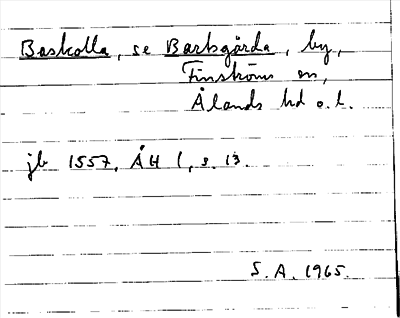 Baskolla, se Barksgårda, by,
Finströms sn,
Ålands hd o. l.
jb 1557, ÅH 1, s. 13.
S. A. 1965.